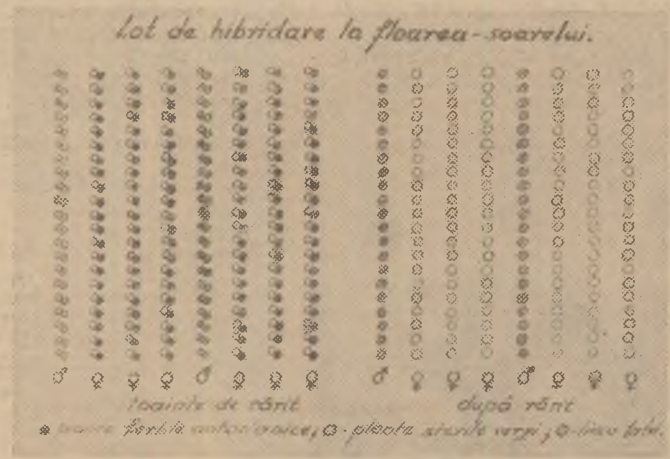 Lot de hibridare la floarea-soarelui.
♂ ♀ ♀ ♀ ♂ ♀ ♀ ♀ ♂ ♀ ♀ ♀ ♂ ♀ ♀ ♀
Înainte de rărit după rărit
fertile antocianice; - plante sterile verzi;